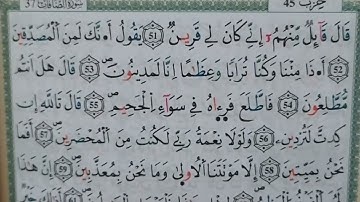 حزب 45 سورة الصافات 37
قَالَ قَآئِلٌ مِّنْهُمُ إِنِّے كَانَ لِے قَرِينٌ 51 يَقُولُ أَٰ۟نَّكَ لَمِنَ ٱلْمُصَدِّقِينَ
52 أَٰ۟ذَا مِتْنَا وَكُنَّا تُرَابًا وَعِظَٰمًا إِنَّا لَمَدِينُونَ 53 قَالَ هَلَ اَنتُم
مُّطَّلِعُونَ 54 فَاطَّلَعَ فَرَءَاهُ فِے سَوَآءِ ٱلْجَحِيمِ 55 قَالَ تَاللَّهِ إِن
كِدتَّ لَتُرْدِينِ 56 وَلَوْلَا نِعْمَةُ رَبِّے لَكُنتُ مِنَ ٱلْمُحْضَرِينَ 57 أَفَمَا
نَحْنُ بِمَيِّتِينَ 58 إِلَّا مَوْتَتَنَا ٱلُاولَىٰ وَمَا نَحْنُ بِمُعَذَّبِينَ 59 إِنَّ هَٰذَا